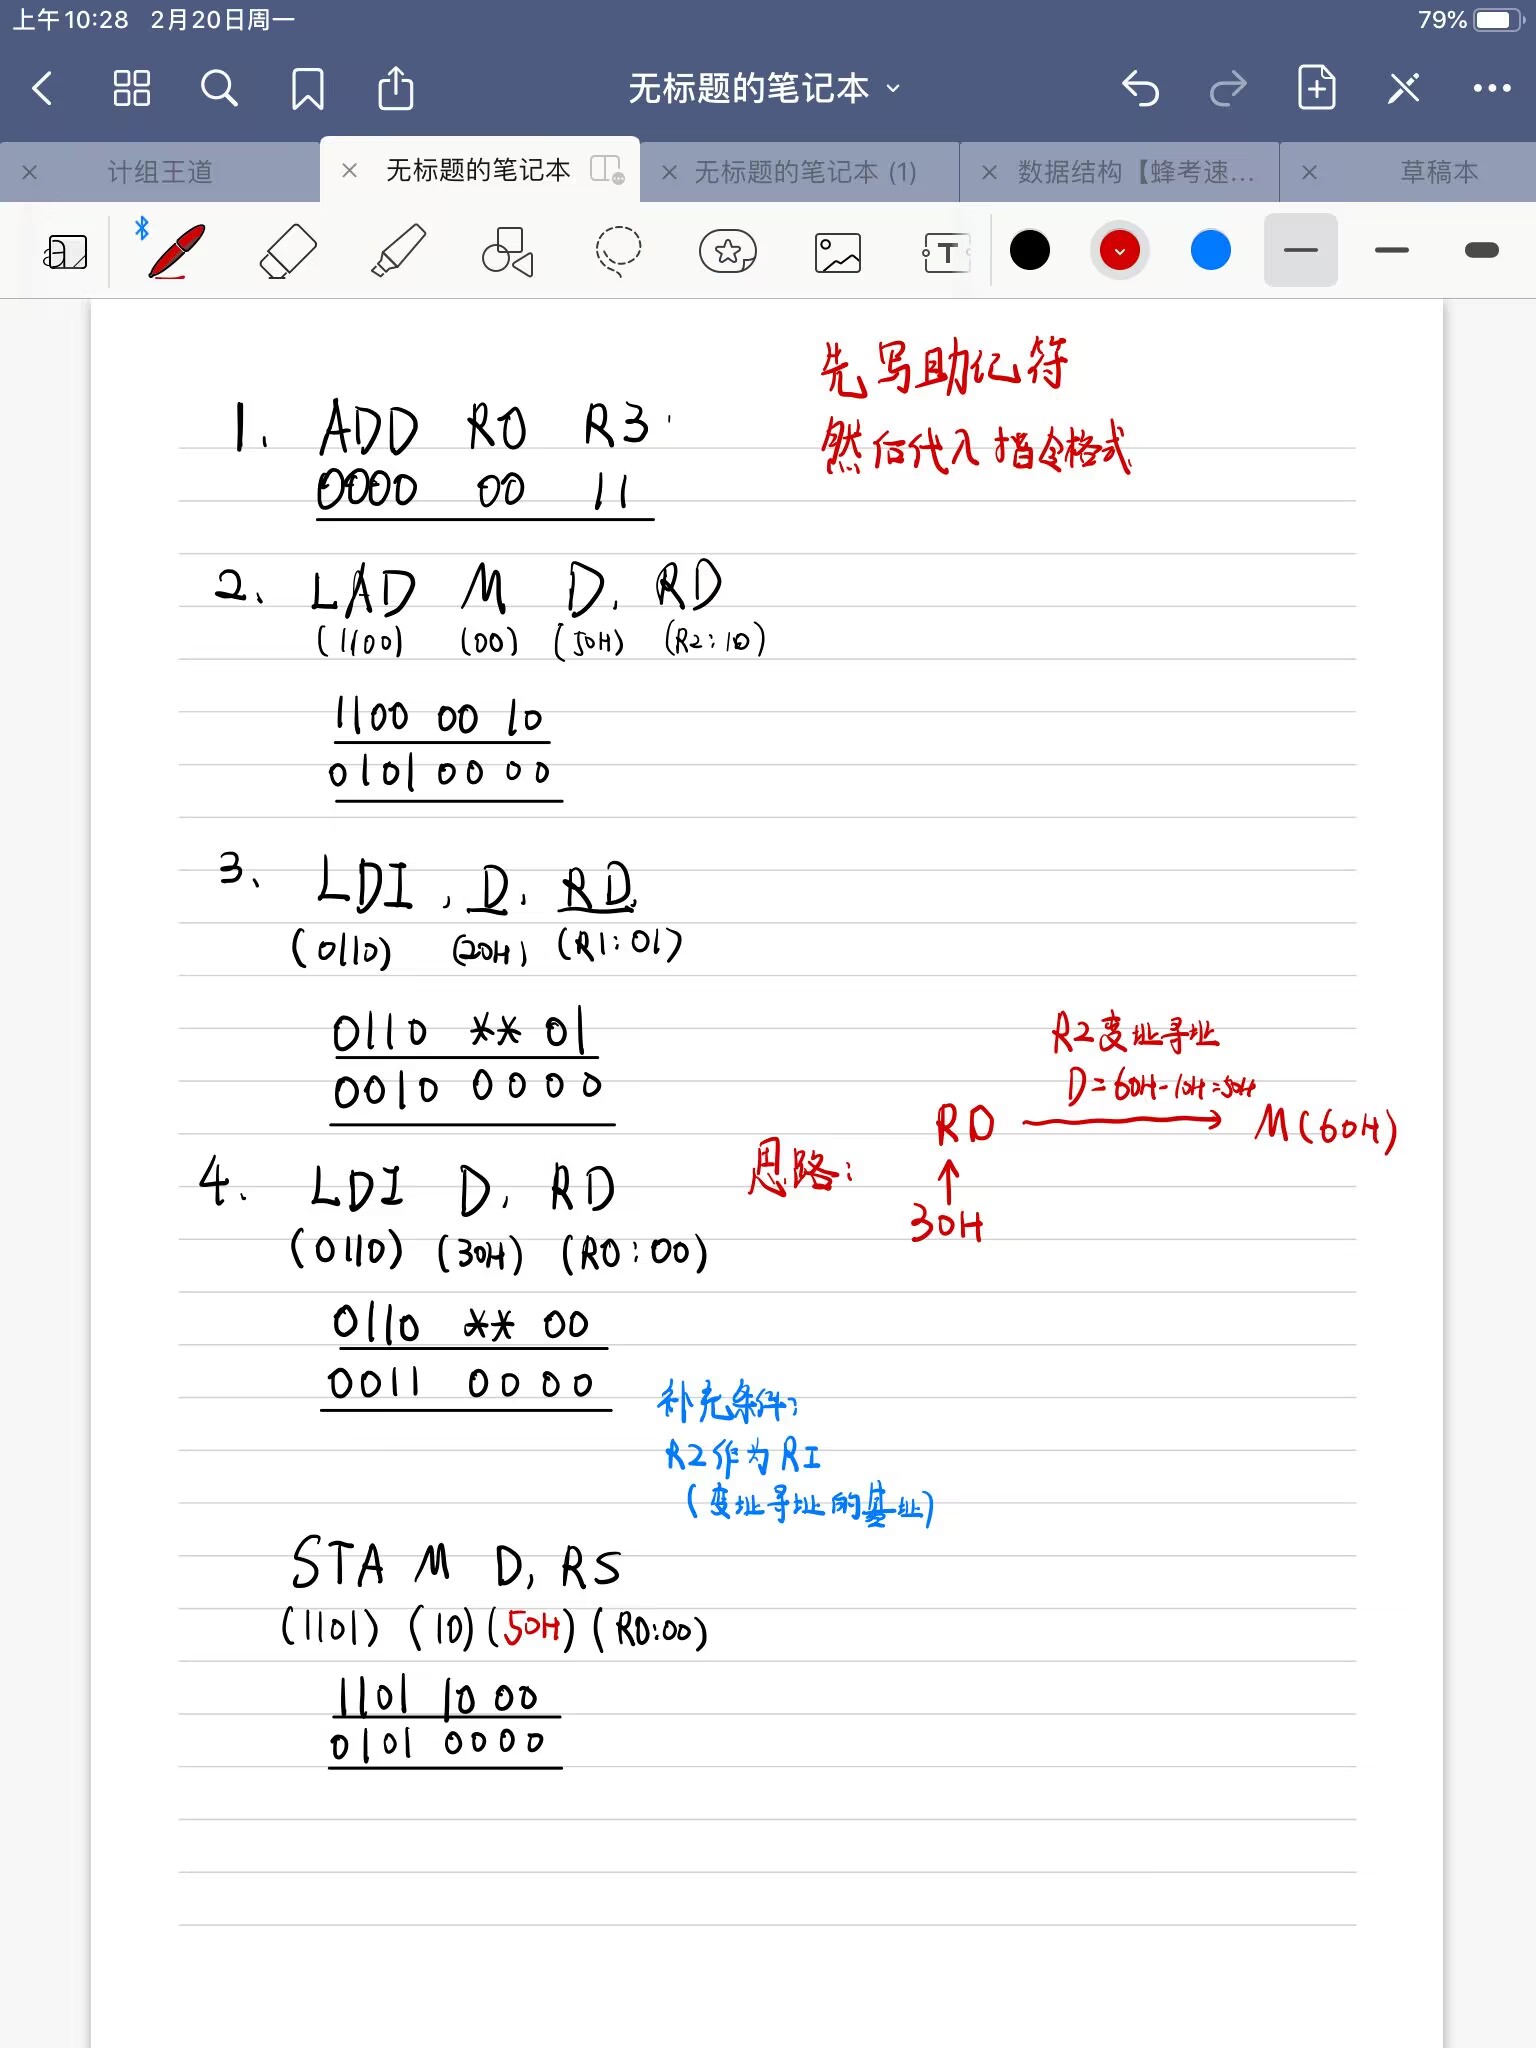 上午10:28 2月20日周一
79%
无标题的笔记本
计组王道
无标题的笔记本
无标题的笔记本 (1)
数据结构【蜂考速...
草稿本
T
先写助记符
然后代入指令格式
1. ADD R0 R3
0000 00 11
2、 LAD M D, RD
(1100) (00) (50H) (R2:10)
1100 00 10
0101 00 00
3、 LDI , D, RD
(0110) (20H) (R1:01)
0110 ** 01
0010 0000
R2变址寻址
D=60H-10H=50H
思路: RD M(60H)
30H
4. LDI D, RD
(0110) (30H) (R0:00)
0110 ** 00
0011 0000
补充条件:
R2作为RI
(变址寻址的基址)
STA M D, RS
(1101) (10) (50H) (R0:00)
1101 10 00
0101 0000